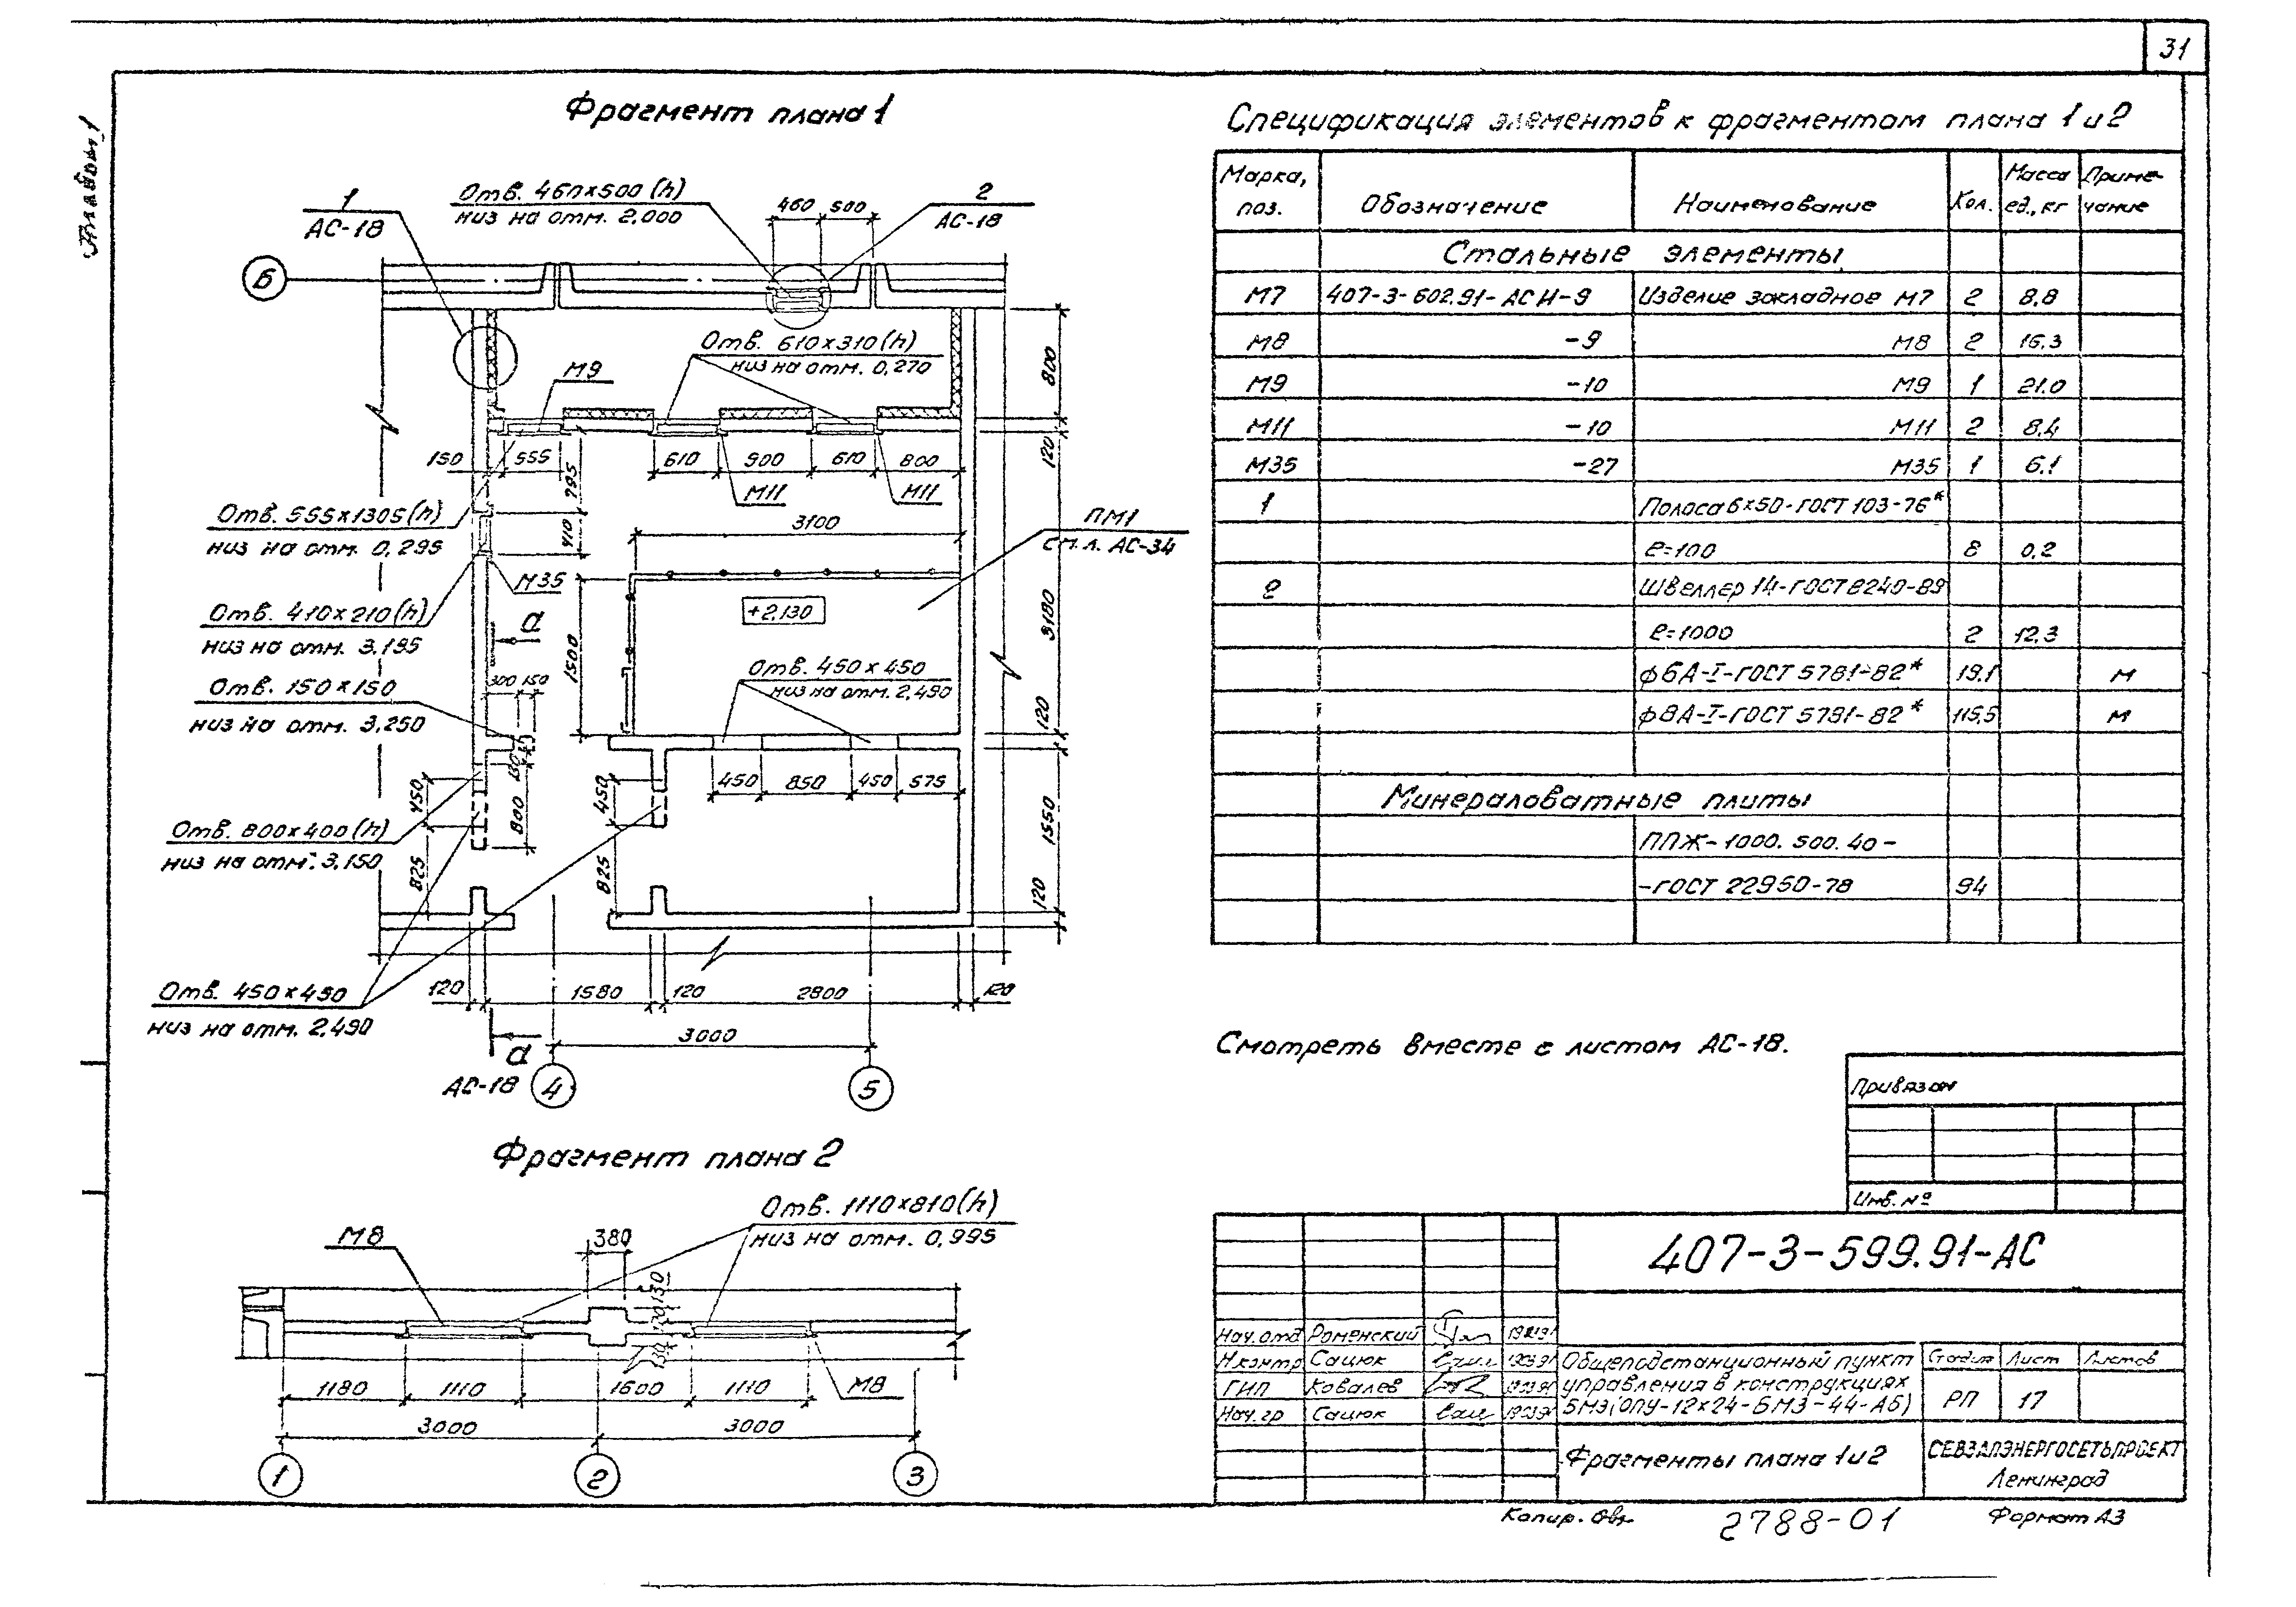 31
Альбом 1
Фрагмент плана 1
1
АС-18
Отв. 460×500 (h)
низ на отм. 2,000
460 500
2
АС-18
Б
Отв. 610×310 (h)
низ на отм. 0,270
М9
800
120
150 555 610 900 610 800
795
М11 М11
Отв. 555×1305 (h)
низ на отм. 0,295
410
3100
ПМ1
см.л. АС-34
М35
Отв. 410×210 (h)
низ на отм. 3,195
а
+2,130
1500
3180
Отв. 450×450
низ на отм. 2,490
300 150
Отв. 150×150
низ на отм. 3,250
120
130
450 850 450 575
450
800
450
Отв. 800×400 (h)
низ на отм. 3,150
825
825
1550
120
Отв. 450×450
низ на отм. 2,490
120 1580 120 2800 120
3000
а
АС-18
4 5
Фрагмент плана 2
М8
Отв. 1110×810 (h)
низ на отм. 0,995
380
130
120
130
1180 1110 1600 1110
М8
3000 3000
1 2 3
Спецификация элементов к фрагментам плана 1 и 2
Марка, поз. Обозначение Наименование Кол. Масса ед., кг Приме-чание
Стальные элементы
М7 407-3-602.91-АСИ-9 Изделие закладное М7 2 8,8
М8 -9 М8 2 16.3
М9 -10 М9 1 21.0
М11 -10 М11 2 8.4
М35 -27 М35 1 6.1
1 Полоса 6×50-ГОСТ 103-76*
ℓ=100 8 0,2
2 Швеллер 14-ГОСТ 8240-89
ℓ=1000 2 12,3
ф6А-I-ГОСТ 5781-82* 19.1 м
ф8А-I-ГОСТ 5781-82* 115,5 м
Минераловатные плиты
ППЖ-1000.500.40-
-ГОСТ 22950-78 94
Смотреть вместе с листом АС-18.
Привязан
Инв. №
407-3-599.91-АС
Нач.отд Роменский
Н.контр Сацюк
ГИП Ковалев
Нач.гр Сацюк
Общеподстанционный пункт
управления в конструкциях
БМЗ (ОПУ-12×24-БМЗ-44-АБ)
Стадия Лист Листов
РП 17
Фрагменты плана 1 и 2
СЕВЗАПЭНЕРГОСЕТЬПРОЕКТ
Ленинград
Копир.
2788-01
Формат А3